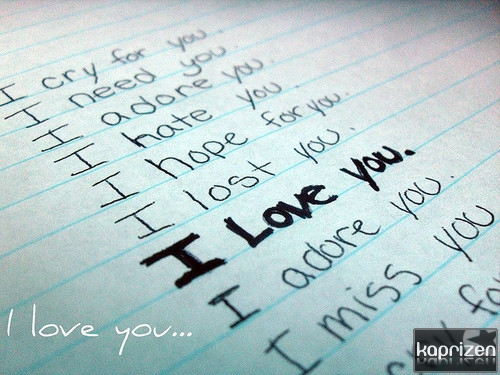 I cry for you.
I need you.
I adore you.
I hate you.
I hope for you.
I lost you.
I Love you.
I adore you.
I miss you
I love you...
kaprizen